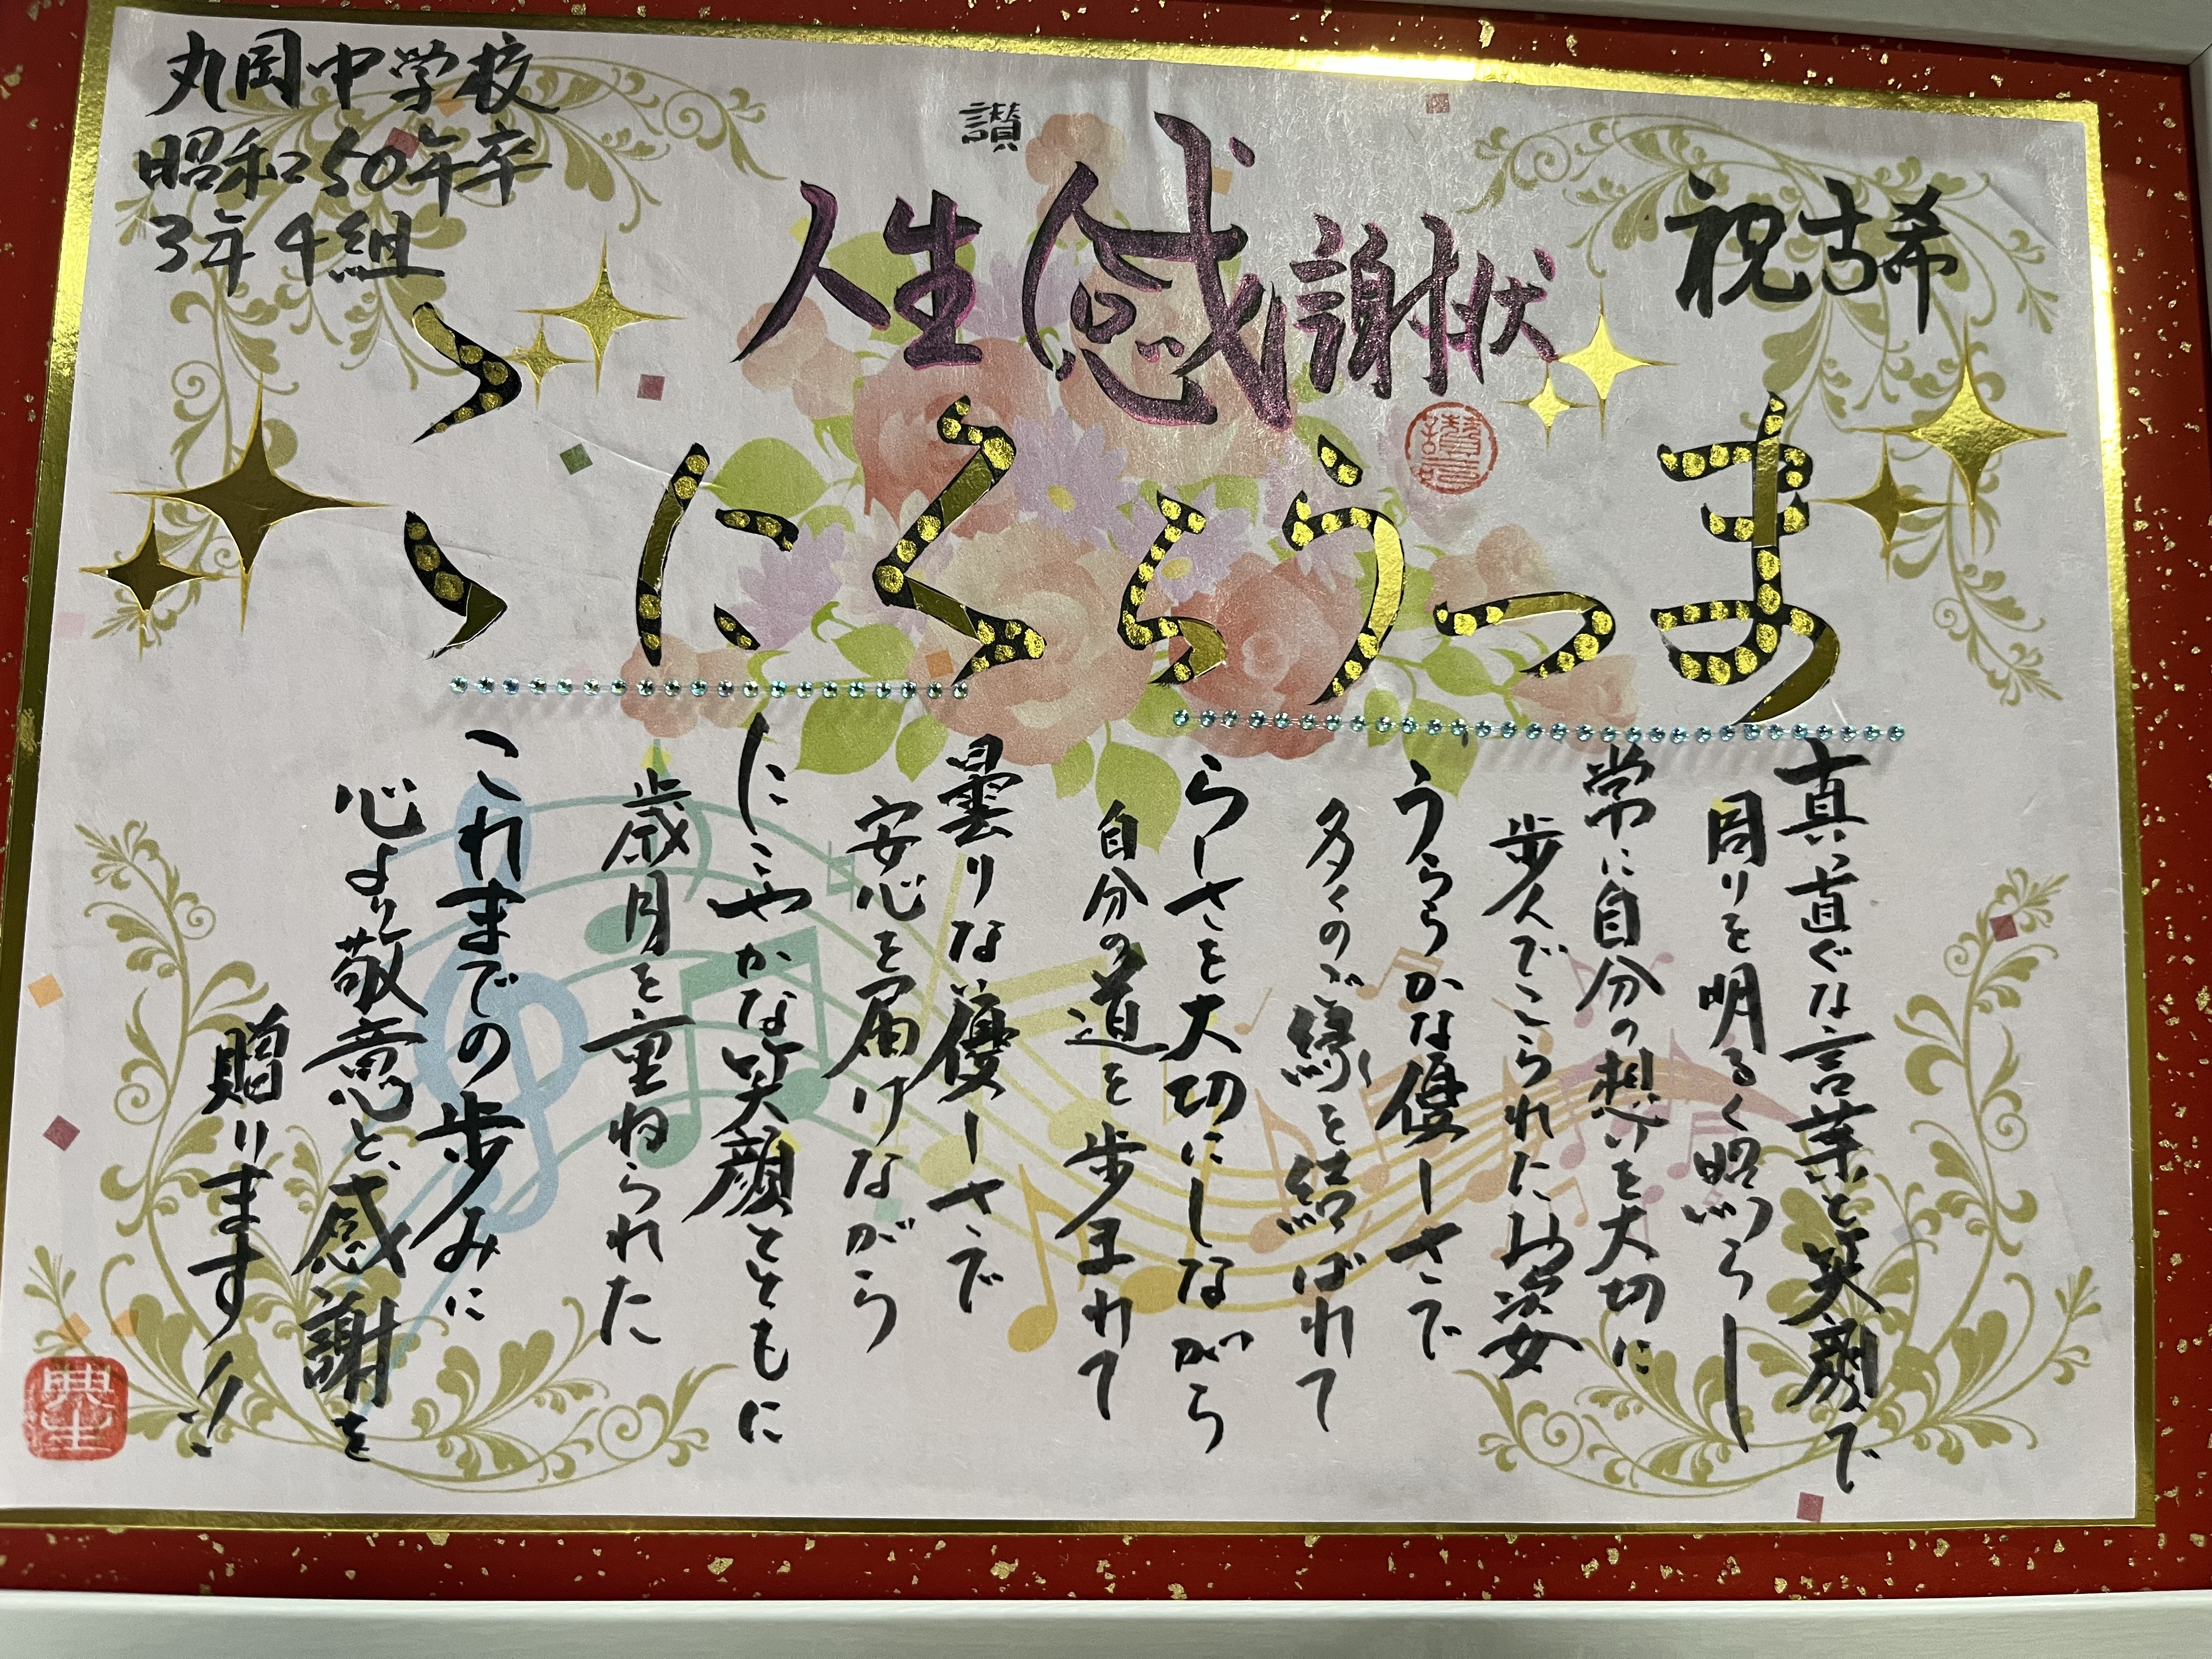 祝古希
讃
人生感謝状
まつうらくにこ
丸岡中学校
昭和50年卒
3年4組
真っ直ぐな言葉と笑顔で
周りを明るく照らし
常に自分の想いを大切に
歩んでこられたお姿
うららかな優しさで
多くのご縁を結ばれて
らしさを大切にしながら
自分の道を歩まれて
曇りない優しさで
安心を届けながら
にこやかな笑顔とともに
歳月を重ねられた
これまでの歩みに
心より敬意と感謝を
贈ります!!
典生